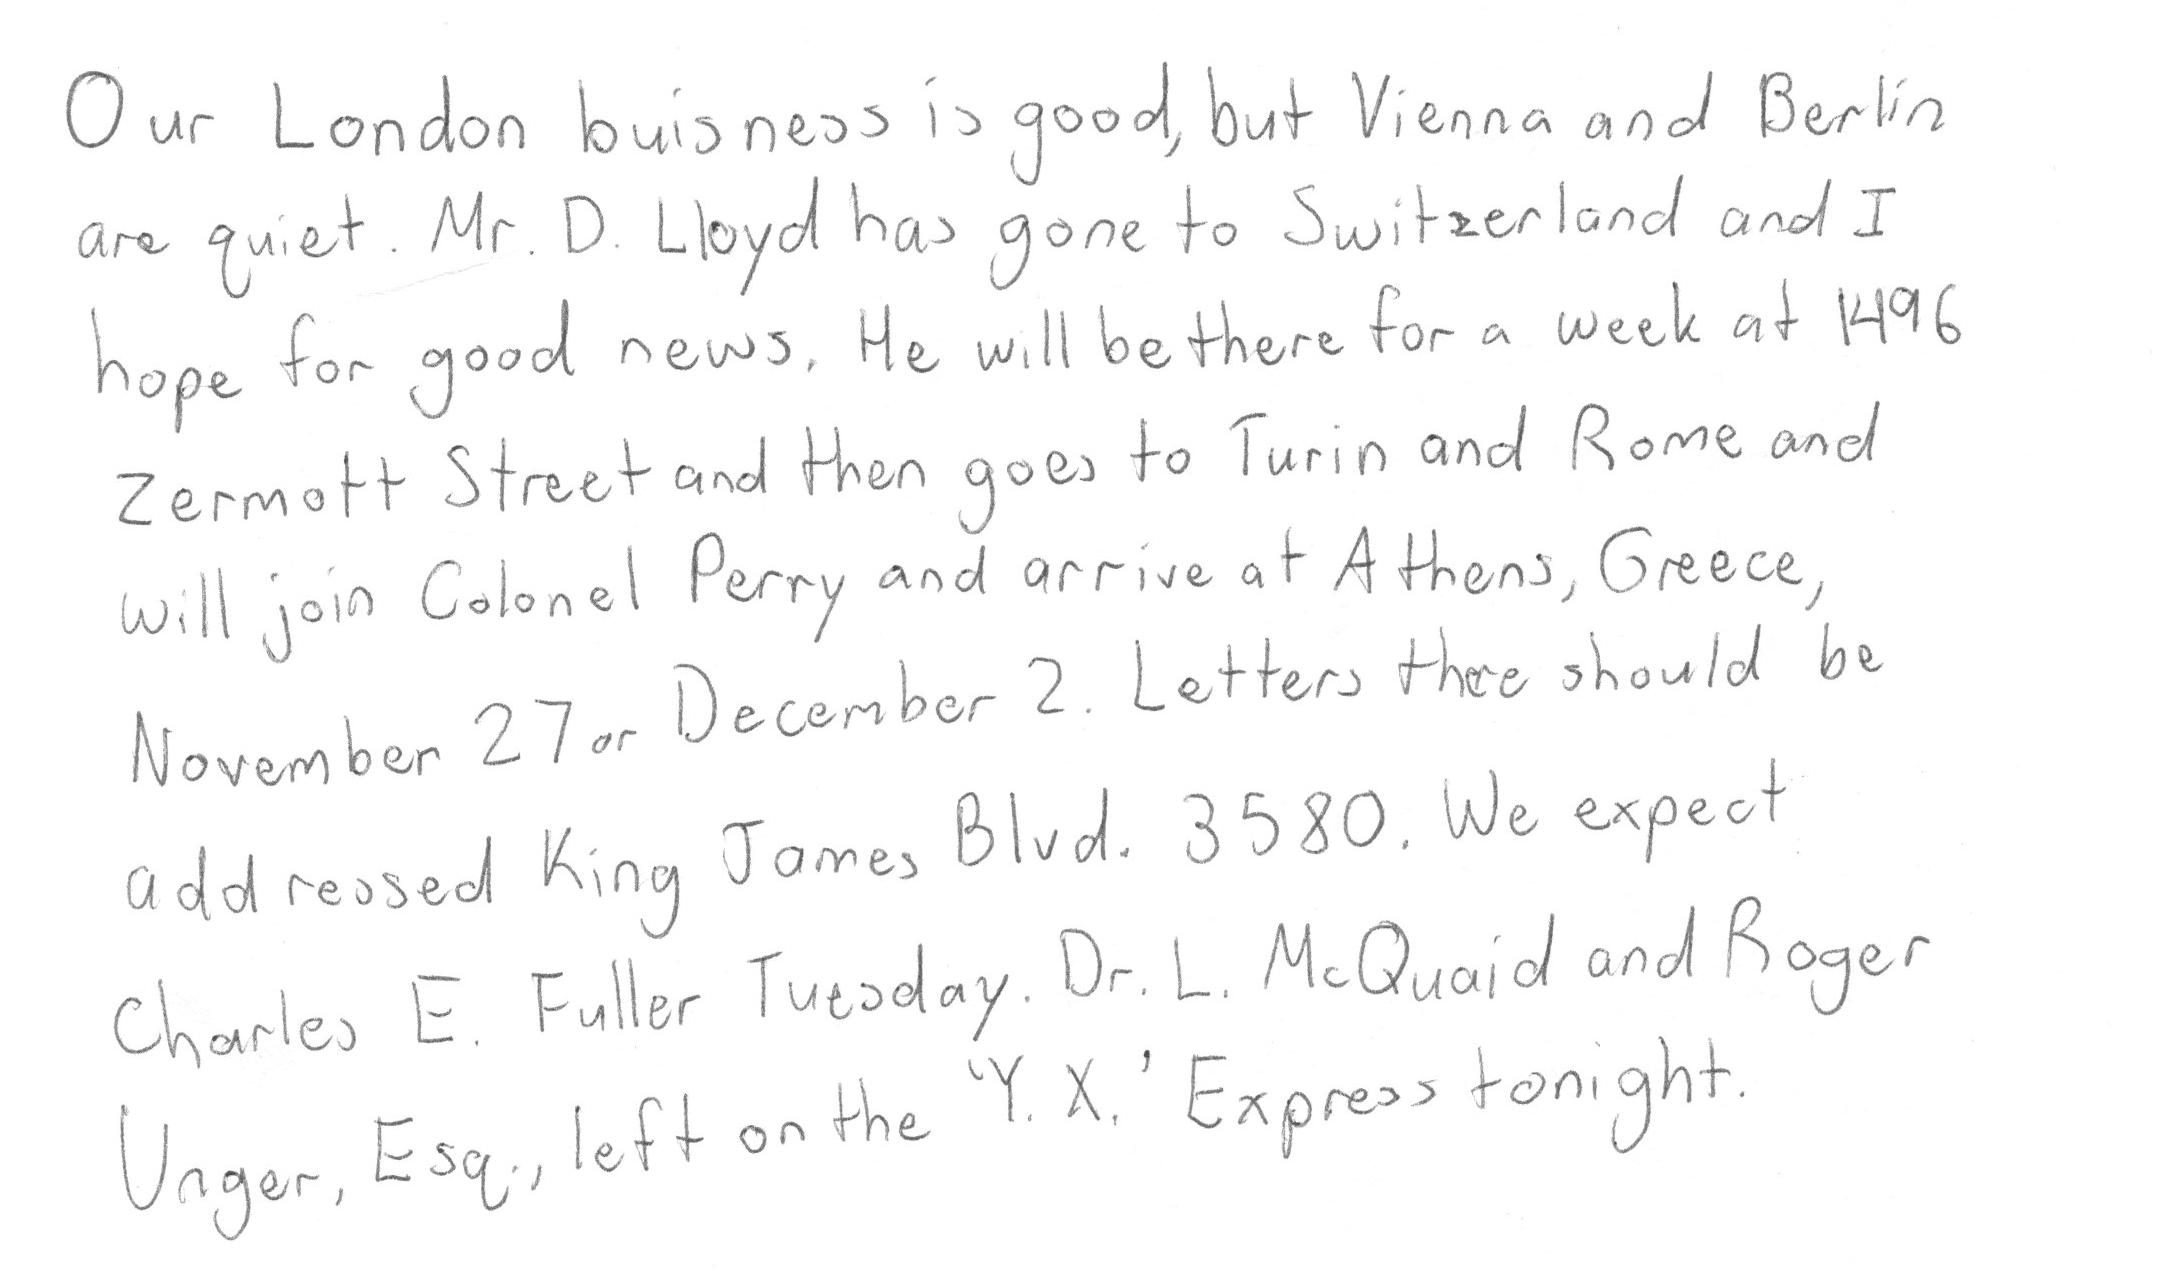 Our London buisness is good, but Vienna and Berlin
are quiet. Mr. D. Lloyd has gone to Switzerland and I
hope for good news. He will be there for a week at 1496
Zermott Street and then goes to Turin and Rome and
will join Colonel Perry and arrive at Athens, Greece,
November 27 or December 2. Letters there should be
addressed King James Blvd. 3580. We expect
Charles E. Fuller Tuesday. Dr. L. McQuaid and Roger
Unger, Esq., left on the 'Y. X.' Express tonight.